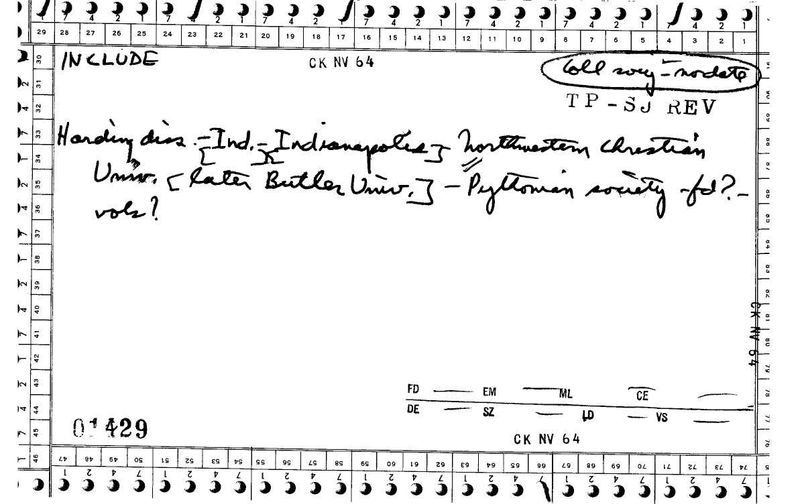 29 28 27 26 25 24 23 22 21 20 19 18 17 16 15 14 13 12 11 10 9 8 7 6 5 4 3 2 1
INCLUDE
CK NV 64
Coll socy - no date
TP-SJ REV
Harding diss. - Ind. - [Indianapolis] Northwestern Christian
Univ. [later Butler Univ.] - Pythonian society - fd? -
vols?
FD EM ML CE
DE SZ LD VS
01429
CK NV 64
CK NV 64
30
31
32
33
34
35
36
37
38
39
40
41
42
43
44
45
46
47 48 49 50 51 52 53 54 55 56 57 58 59 60 61 62 63 64 65 66 67 68 69 70 71 72 73 74